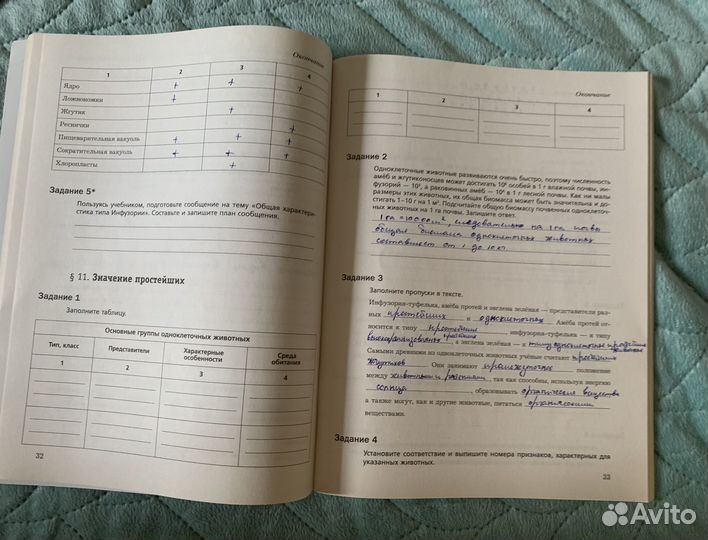 Окончание
1 2 3 4
Ядро + + +
Ложноножки +
Жгутик +
Реснички +
Пищеварительная вакуоль + + +
Сократительная вакуоль + + +
Хлоропласты +
Задание 5*
Пользуясь учебником, подготовьте сообщение на тему «Общая характери-
стика типа Инфузории». Составьте и запишите план сообщения.
§ 11. Значение простейших
Задание 1
Заполните таблицу.
Основные группы одноклеточных животных
Тип, класс Представители Характерные особенности Среда обитания
1 2 3 4
32
Окончание
1 2 3 4
Задание 2
Одноклеточные животные развиваются очень быстро, поэтому численность
амёб и жгутиконосцев может достигать 10⁶ особей в 1 г влажной почвы, ин-
фузорий — 10³, а раковинных амёб — 10⁵ в 1 г лесной почвы. Как ни малы
размеры этих животных, их общая биомасса может быть значительна и до-
стигать 1–10 г на 1 м². Подсчитайте общую биомассу почвенных одноклеточ-
ных животных на 1 га почвы. Запишите ответ.
1 га = 10000 м², следовательно на 1 га почвы
общая биомасса одноклеточных животных
составляет от 1 до 10 кг.
Задание 3
Заполните пропуски в тексте.
Инфузория-туфелька, амёба протей и эвглена зелёная — представители раз-
ных простейших и одноклеточных. Амёба протей от-
носится к типу простейшие, инфузория-туфелька — к типу
, а эвглена зелёная — к типу одноклеточные простейшие животные
Самыми древними из одноклеточных животных учёные считают простейших
жгутиков. Они занимают промежуточное положение
между животными и растениями, так как способны, используя энергию
солнца, образовывать органические вещества
а также могут, как и другие животные, питаться органическими
веществами.
Задание 4
Установите соответствие и выпишите номера признаков, характерных для
указанных животных.
33
Avito